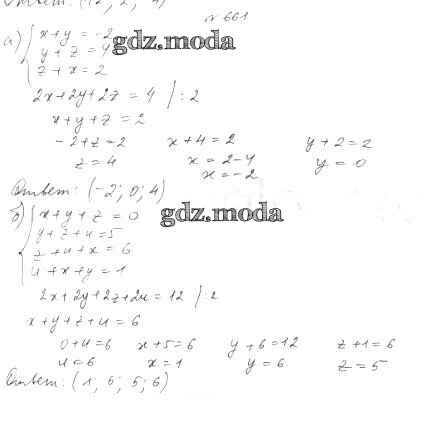 № 661
а) { x + y = -2
y + z = 4
z + x = 2
gdz.moda
2x + 2y + 2z = 4 / : 2
x + y + z = 2
-2 + z = 2    x + 4 = 2    y + 2 = 2
z = 4    x = 2 - 4    y = 0
x = -2
Ответ: (-2; 0; 4)
б) { x + y + z = 0
y + z + u = 5
z + u + x = 6
u + x + y = 1
gdz.moda
2x + 2y + 2z + 2u = 12 / 2
x + y + z + u = 6
0 + u = 6    x + 5 = 6    y + 6 = 12    z + 1 = 6
u = 6    x = 1    y = 6    z = 5
Ответ: (1; 6; 5; 6)